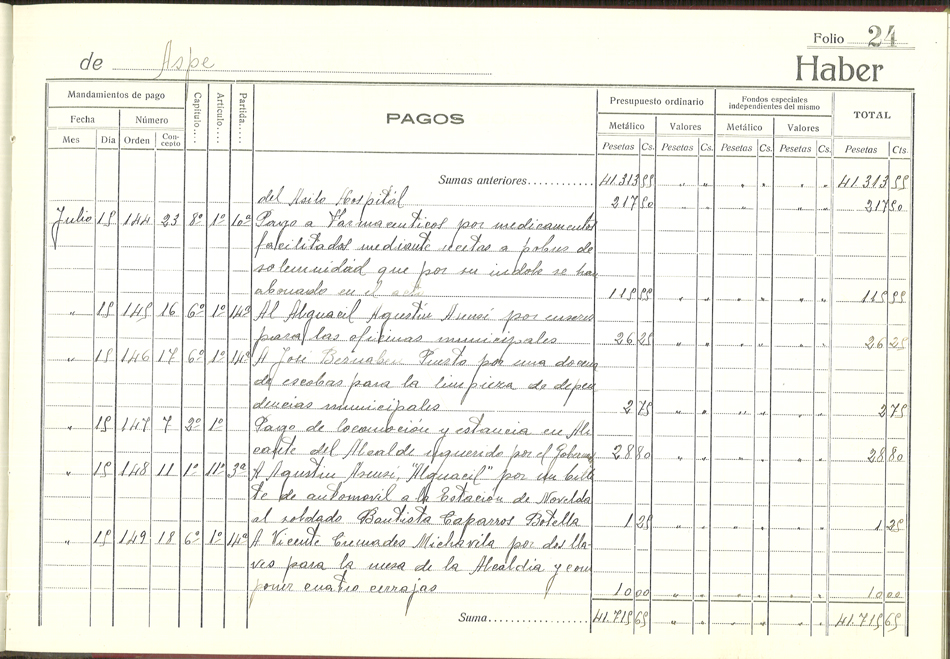 Folio 24
de Aspe
Haber
Mandamientos de pago Capítulo.... Artículo.... Partida.... PAGOS Presupuesto ordinario Fondos especiales independientes del mismo TOTAL
Fecha Número Metálico Valores Metálico Valores
Mes Día Orden Concepto Pesetas Cs. Pesetas Cs. Pesetas Cs. Pesetas Cs. Pesetas Cts.
Sumas anteriores............ 41.313 55 " " " " " " 41.313 55
del Asilo Hospital 217 50 217 50
Julio 15 144 23 8º 1º 10ª Pago a Farmaceuticos por medicamentos
facilitados mediante recetas a pobres de
solemnidad que por su indole se han
abonado en el acto 115 55 " " " " " " 115 55
" 15 145 16 6º 1º 14ª Al Alguacil Agustin Asensi por enseres
para las oficinas municipales 26 25 " " " " " " 26 25
" 15 146 17 6º 1º 14ª A José Bernabeu Puesto por una docena
de escobas para la limpieza de depen
dencias municipales 2 75 " " " " " " 2 75
" 15 147 7 2º 1º Pago de locomoción y estancia en Ali
cante del Alcalde requerido por el Gobierno 28 80 " " " " " " 28 80
" 15 148 11 1º 11º 3ª A Agustin Asensi, "Alguacil" por un bille
te de automovil a la Estación de Novelda
al soldado Bautista Caparros Botella 1 25 " " " " " " 1 25
" 15 149 18 6º 1º 14ª A Vicente Cremades Michavila por dos lla-
ves para la mesa de la Alcaldia y com
poner cuatro cerrajas 10 00 " " " " " " 10 00
Suma.................... 41.715 65 " " " " " " 41.715 65